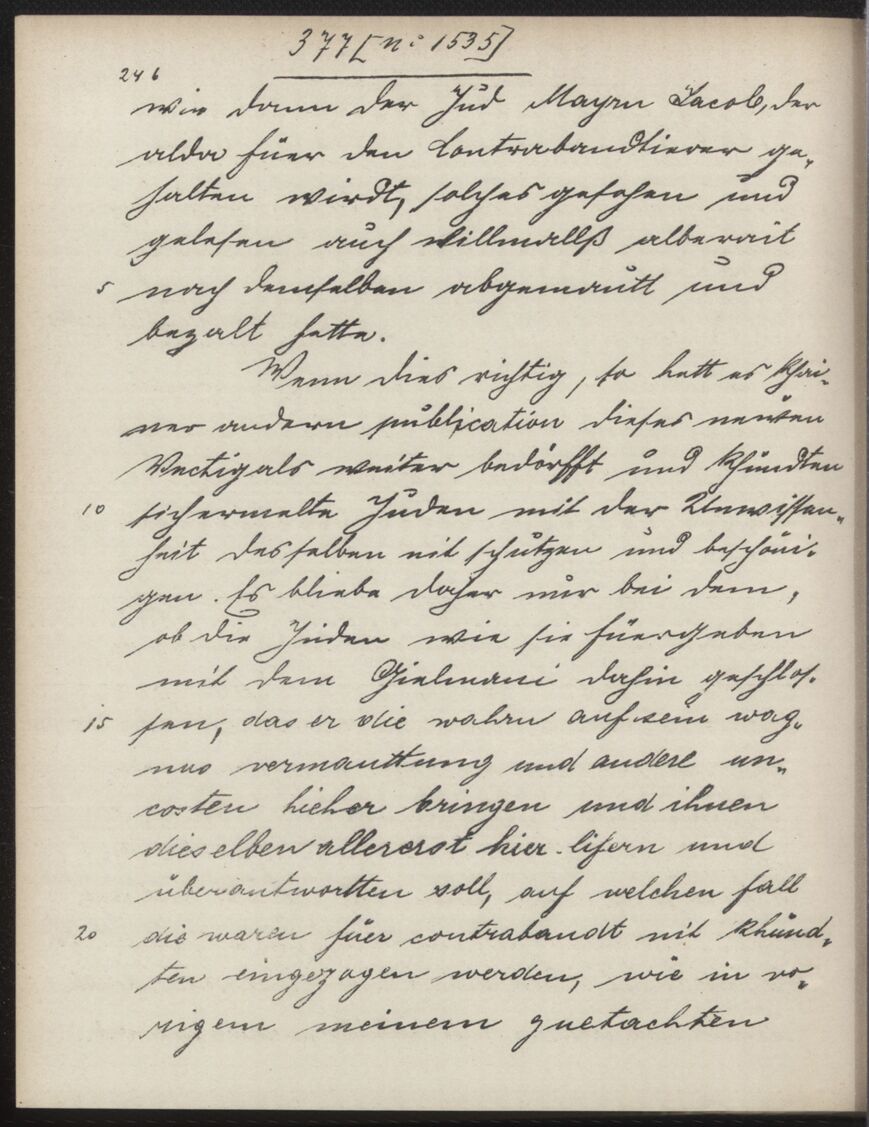 377 [nº 1535]
246
wie dann der Jud Mayrn Jacob, der
alda füer den Contrabandtierer ge„
halten wirdt, solches gesehen und
gelesen auch villmallß alberait
5 nach demselben abgemautt und
bezalt hette.
Wenn dies richtig, so hett es khai„
ner andern publication dieses neuen
Vectigals weiter bedörfft und khundten
10 sich ermelte Juden mit der Unwissen„
heit desselben nit schutzen und beschöni„
gen. Es bliebe daher nur bei dem,
ob die Juden wie sie füergeben
mit dem Gielmani dahin geschlos„
15 sen, das er die wahrn auf sein wag„
nus vermauttung und andere un„
costen hieher bringen und ihnen
dieselben allererst hier lifern und
überantwortten soll, auf welchen fall
20 die waren füer contrabandt nit khünd„
ten eingezogen werden, wie in vo„
rigem meinem guetachten